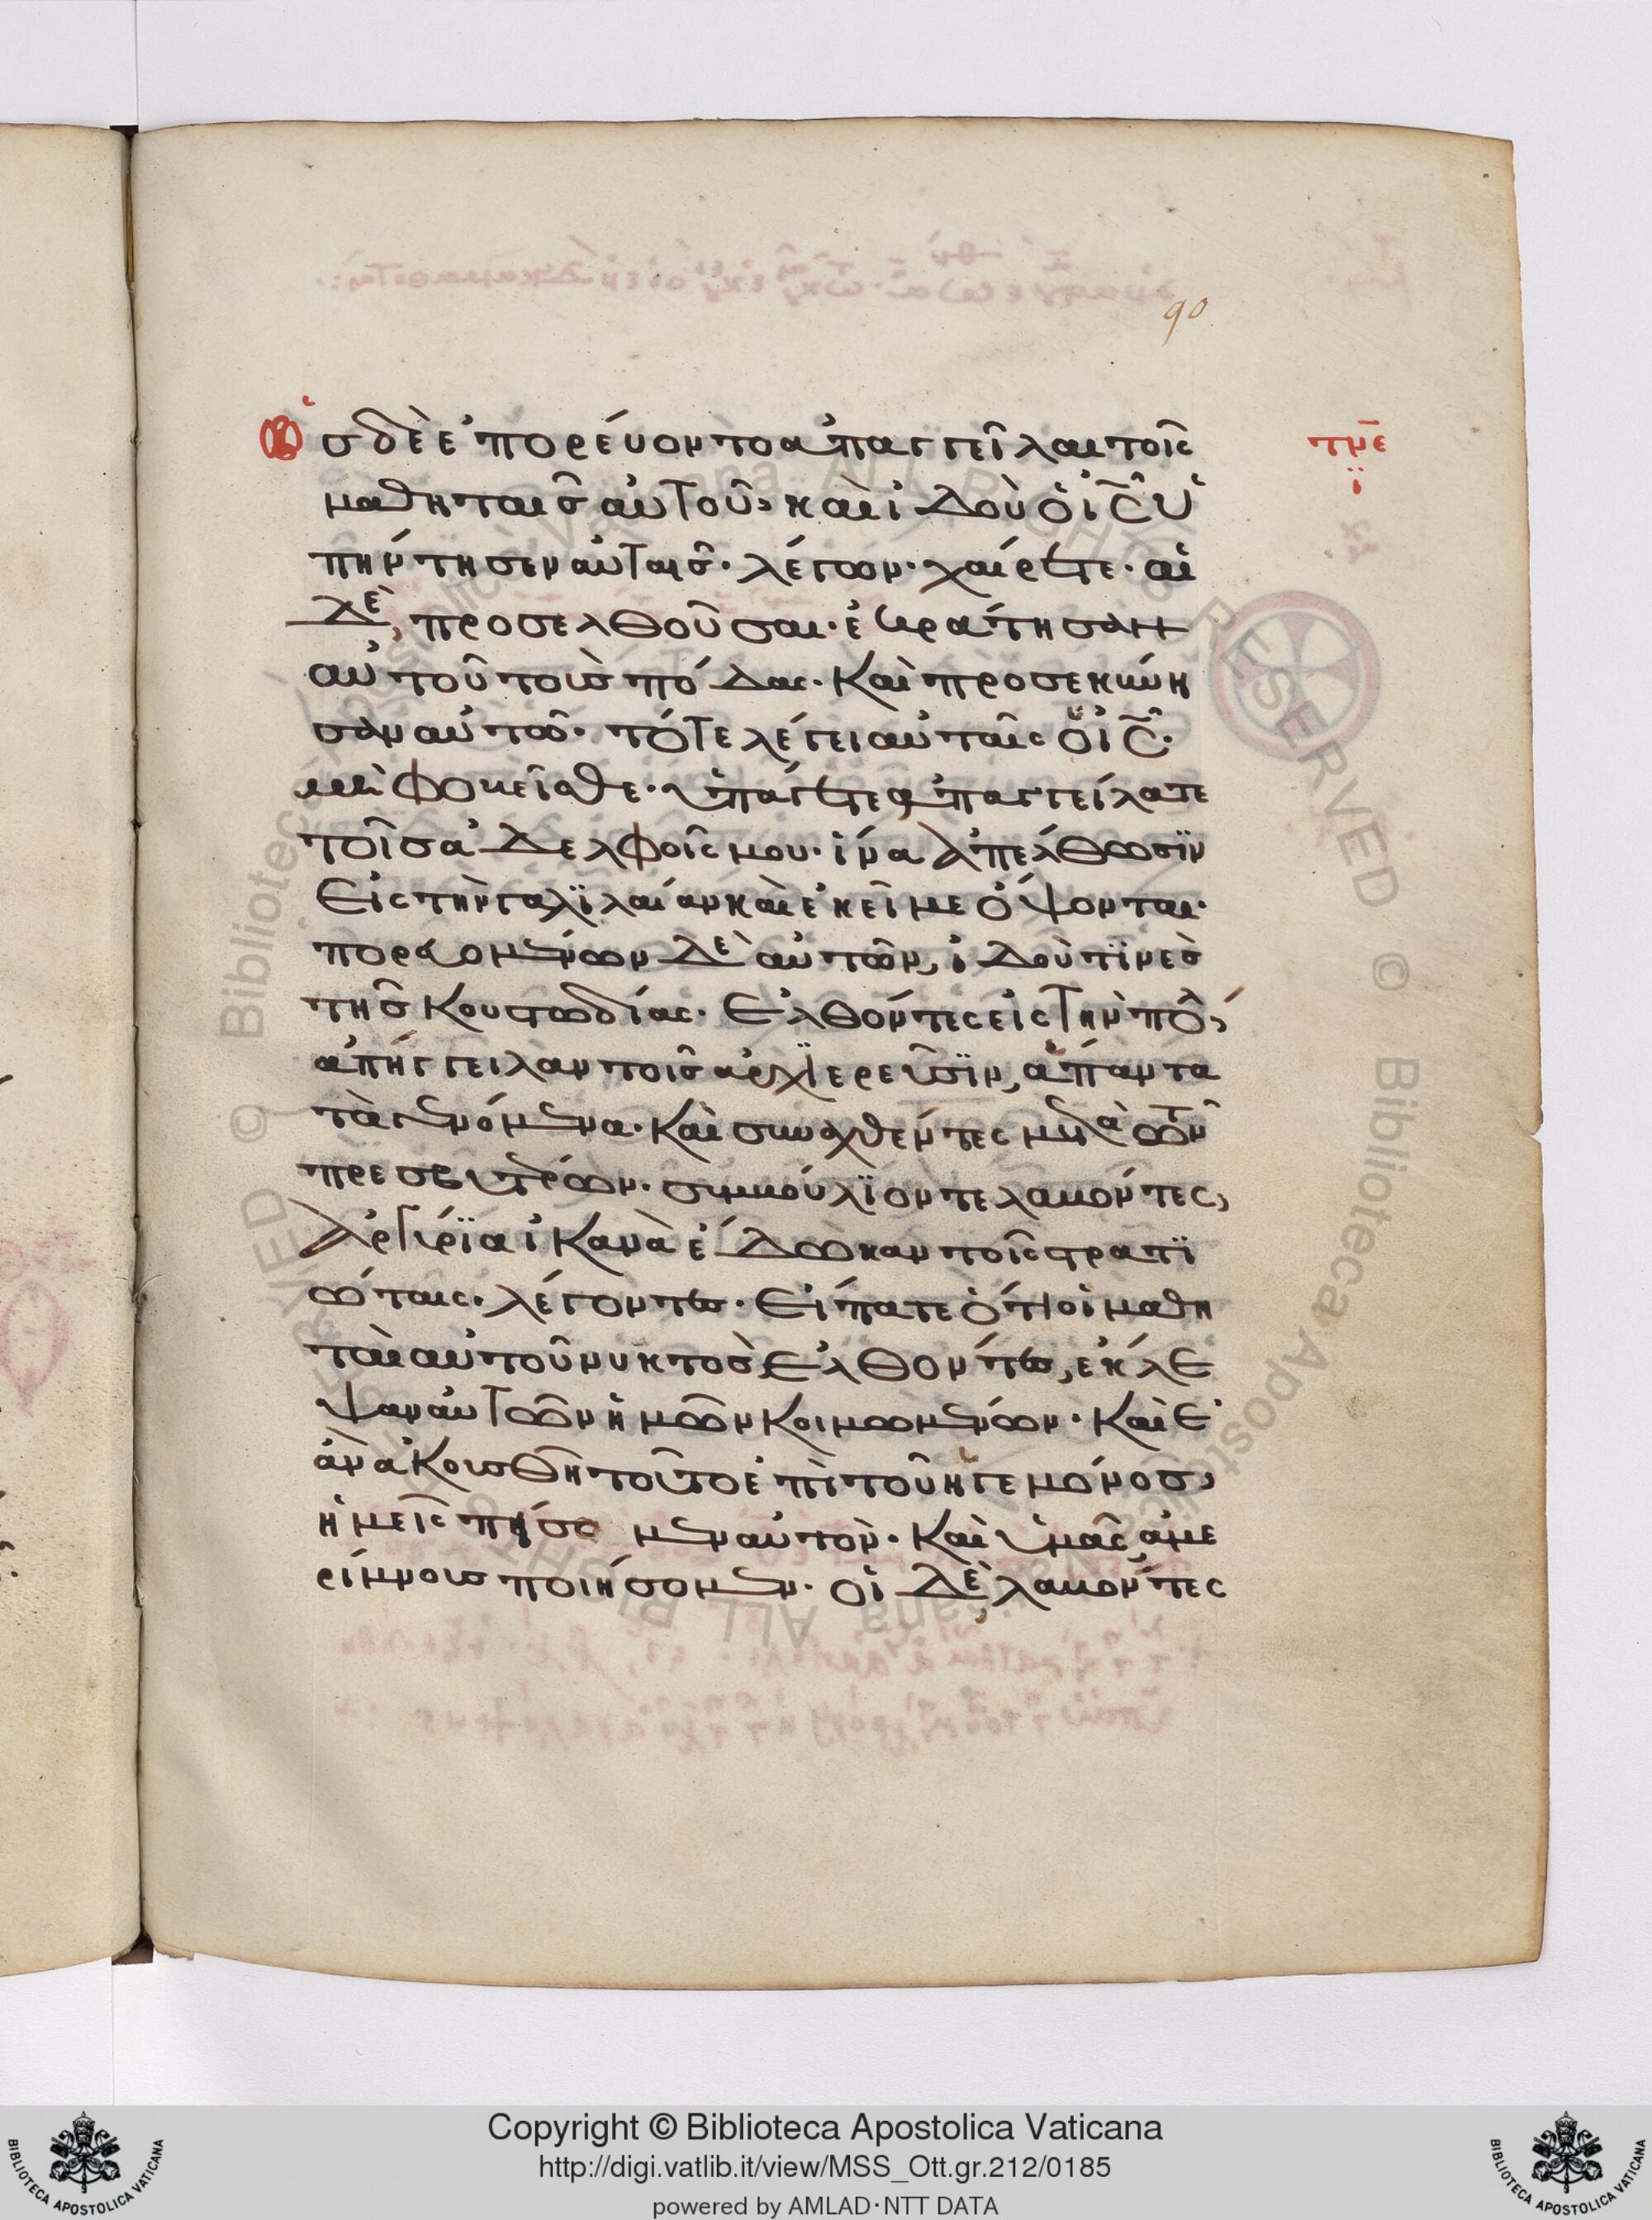 90
Ὡς δὲ ἐπορεύοντο ἀπαγγεῖλαι τοῖς
τμε
ι
μαθηταῖς αὐτοῦ, καὶ ἰδοὺ ὁ ις ὑ
πήντησεν αὐταῖς· λέγων· χαίρετε· αἱ
δὲ, προσελθοῦσαι· ἐκράτησαν
αὐτοῦ τοὺς πόδας· καὶ προσεκύνη
σαν αὐτῶ· τότε λέγει αὐταῖς ὁ ις·
μὴ φοβεῖσθε· ὑπάγετε ἀπαγγείλατε
τοῖς ἀδελφοῖς μου· ἵνα ἀπέλθωσϊν
εἰς τὴν γαλϊλαίαν καὶ ἐκεῖ με ὄψονται·
πορευομένων δὲ αὐτῶν, ἰδού τϊνες
τῆς κουστωδίας· ἐλθόντες εἰς τὴν πόλ,
ἀπήγγειλαν τοῖς ἀρχϊερεῦσϊν, ἅπαντα
τὰ γενόμενα· καὶ συναχθέντες μετὰ τῶν
πρεσβυτέρων· συμβούλϊόν τε λαβόντες,
ἀργύρϊα ἱκανὰ ἔδωκαν τοῖς στρατϊ
ώταις· λέγοντες· εἴπατε ὅτι οἱ μαθη
ταὶ αὐτοῦ νυκτὸς ἐλθόντες, ἔκλε
ψαν αὐτὸν ἡμῶν κοιμωμένων· καὶ ἐ
ὰν ἀκουσθῆ τοῦτο ἐπὶ τοῦ ἡγεμόνος,
ἡμεῖς πείσομεν αὐτὸν· καὶ ὑμᾶς ἀμε
ρίμνους ποιήσομεν· οἱ δὲ λαβόντες
© Biblioteca Apostolica Vaticana ALL RIGHTS RESERVED
© Biblioteca Apostolica Vaticana ALL RIGHTS RESERVED
Copyright © Biblioteca Apostolica Vaticana
http://digi.vatlib.it/view/MSS_Ott.gr.212/0185
powered by AMLAD·NTT DATA
BIBLIOTECA APOSTOLICA VATICANA
BIBLIOTECA APOSTOLICA VATICANA